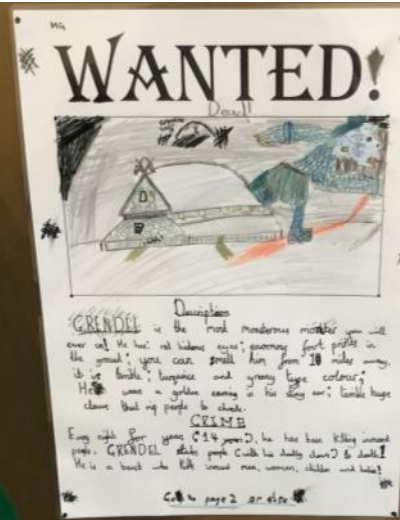 MG
WANTED!
Dead!
Description
GRENDEL is the most monsterous monster you will
ever see! He has: red hideous eyes; enormous foot prints in
the ground; you can smell him from 10 miles away,
it is terrible; turquoise and greeny type colour;
He wears a golden earring in his slimy ear; terrible huge
claws that rip people to shreds.
CRIME
Every night for years (14 years), he has been killing innocent
people. GRENDEL people (with his deadly claws) to death!
He is a beast who kills innocent men, women, children and babies!
Go to page 2 or else